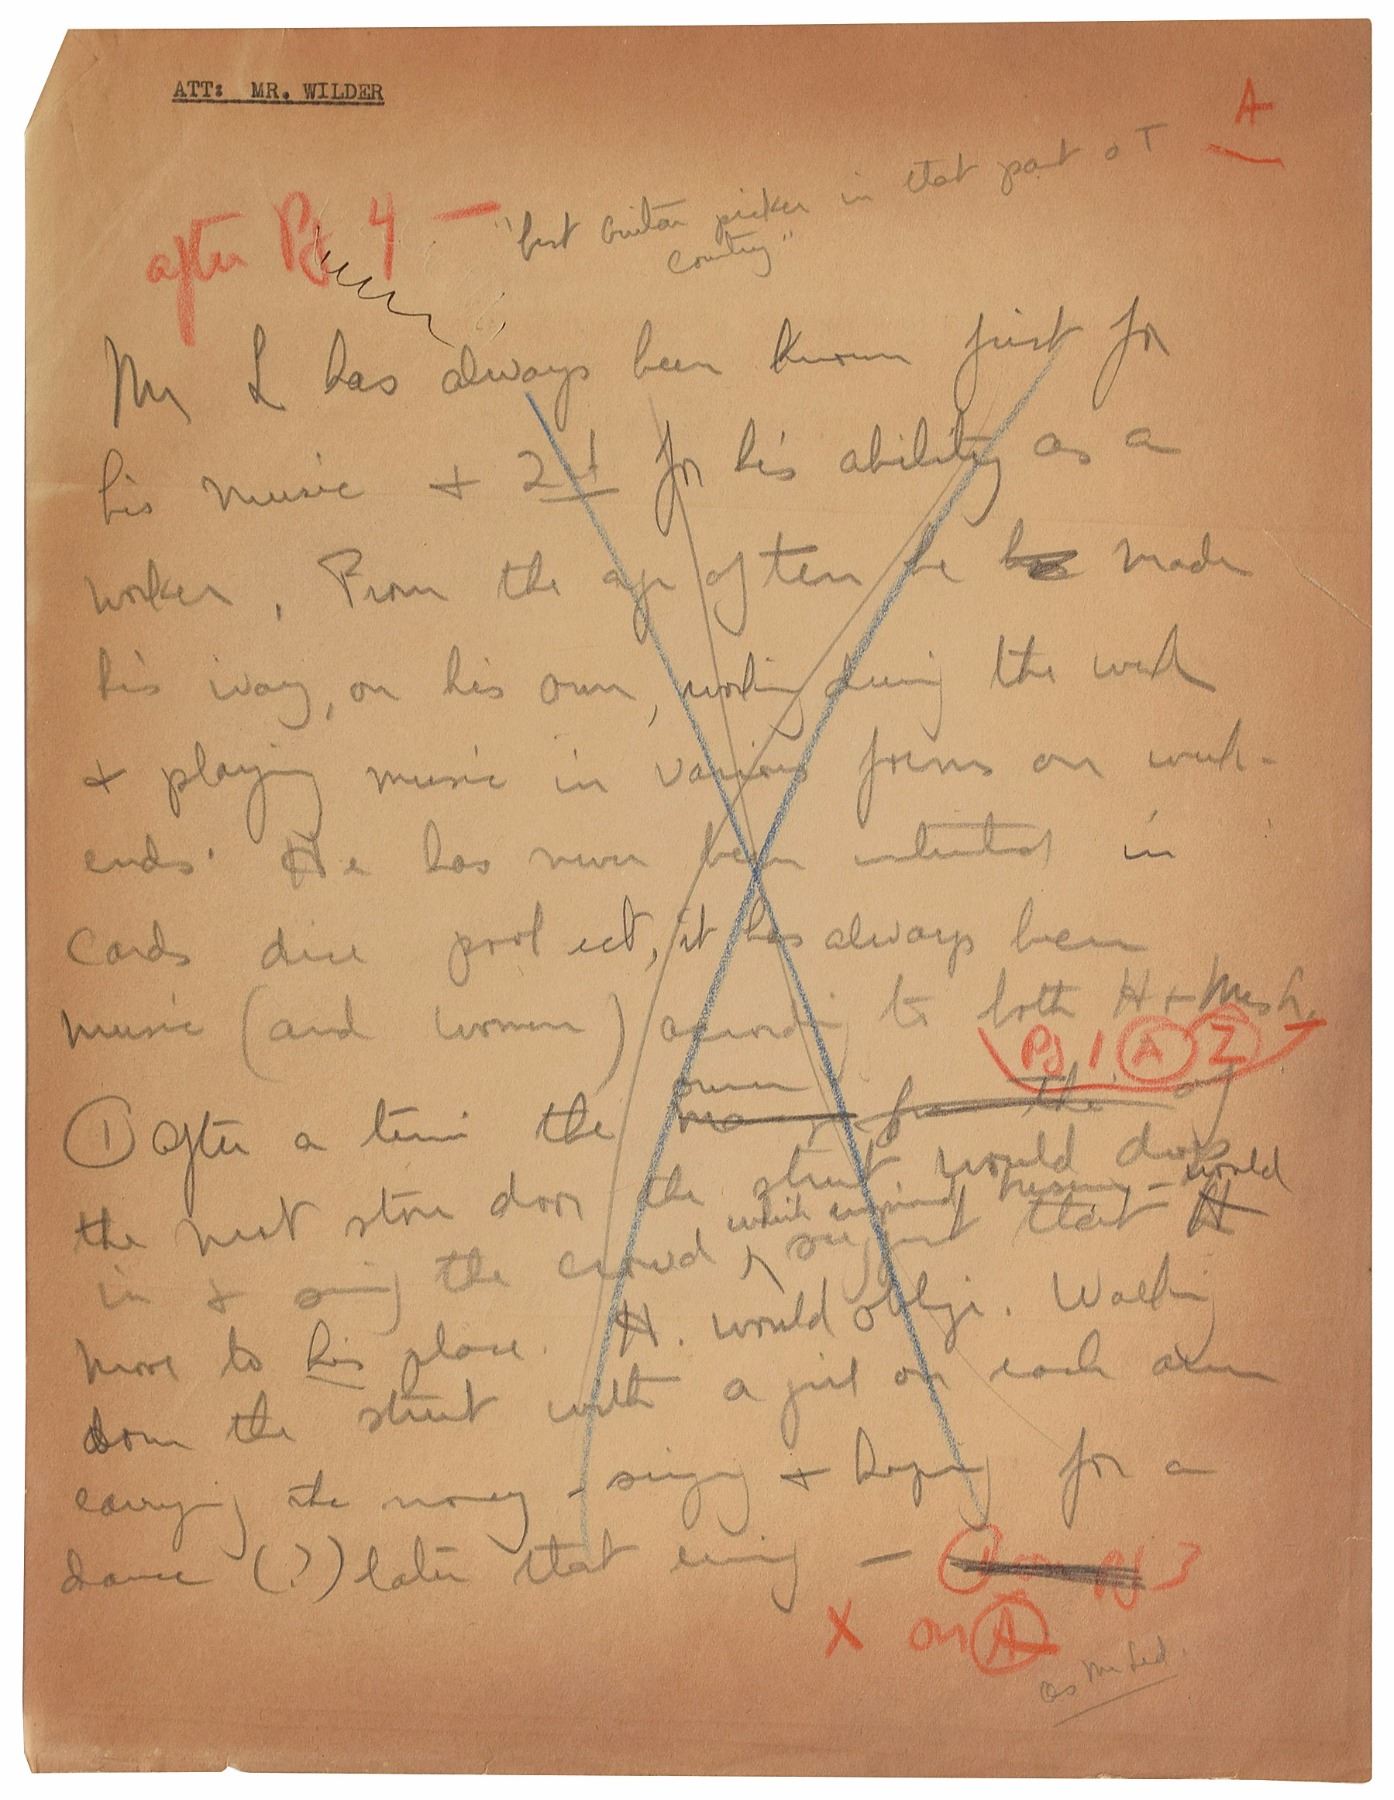 ATT: MR. WILDER
A
after Pg 4 — "best Guitar picker in that part of T
country"
Mr L has always been known first for
his music + 2d for his ability as a
worker. From the age of ten he has made
his way, on his own, working during the week
+ playing music in various forms on week-
ends. He has never been interested in
cards dice pool ect, it has always been
music (and women) according to both H + Mrs L.
Pg 1 A 2
① after a time the owner of
the next store down the street would drop
in + sing the crowd which enjoyed music - would
suggest that H
move to his place. H. would oblige. Walking
down the street with a girl on each arm
carrying the money - singing + hoping for a
dance (?) later that evening — pg 3
X on A
as Mr Led.